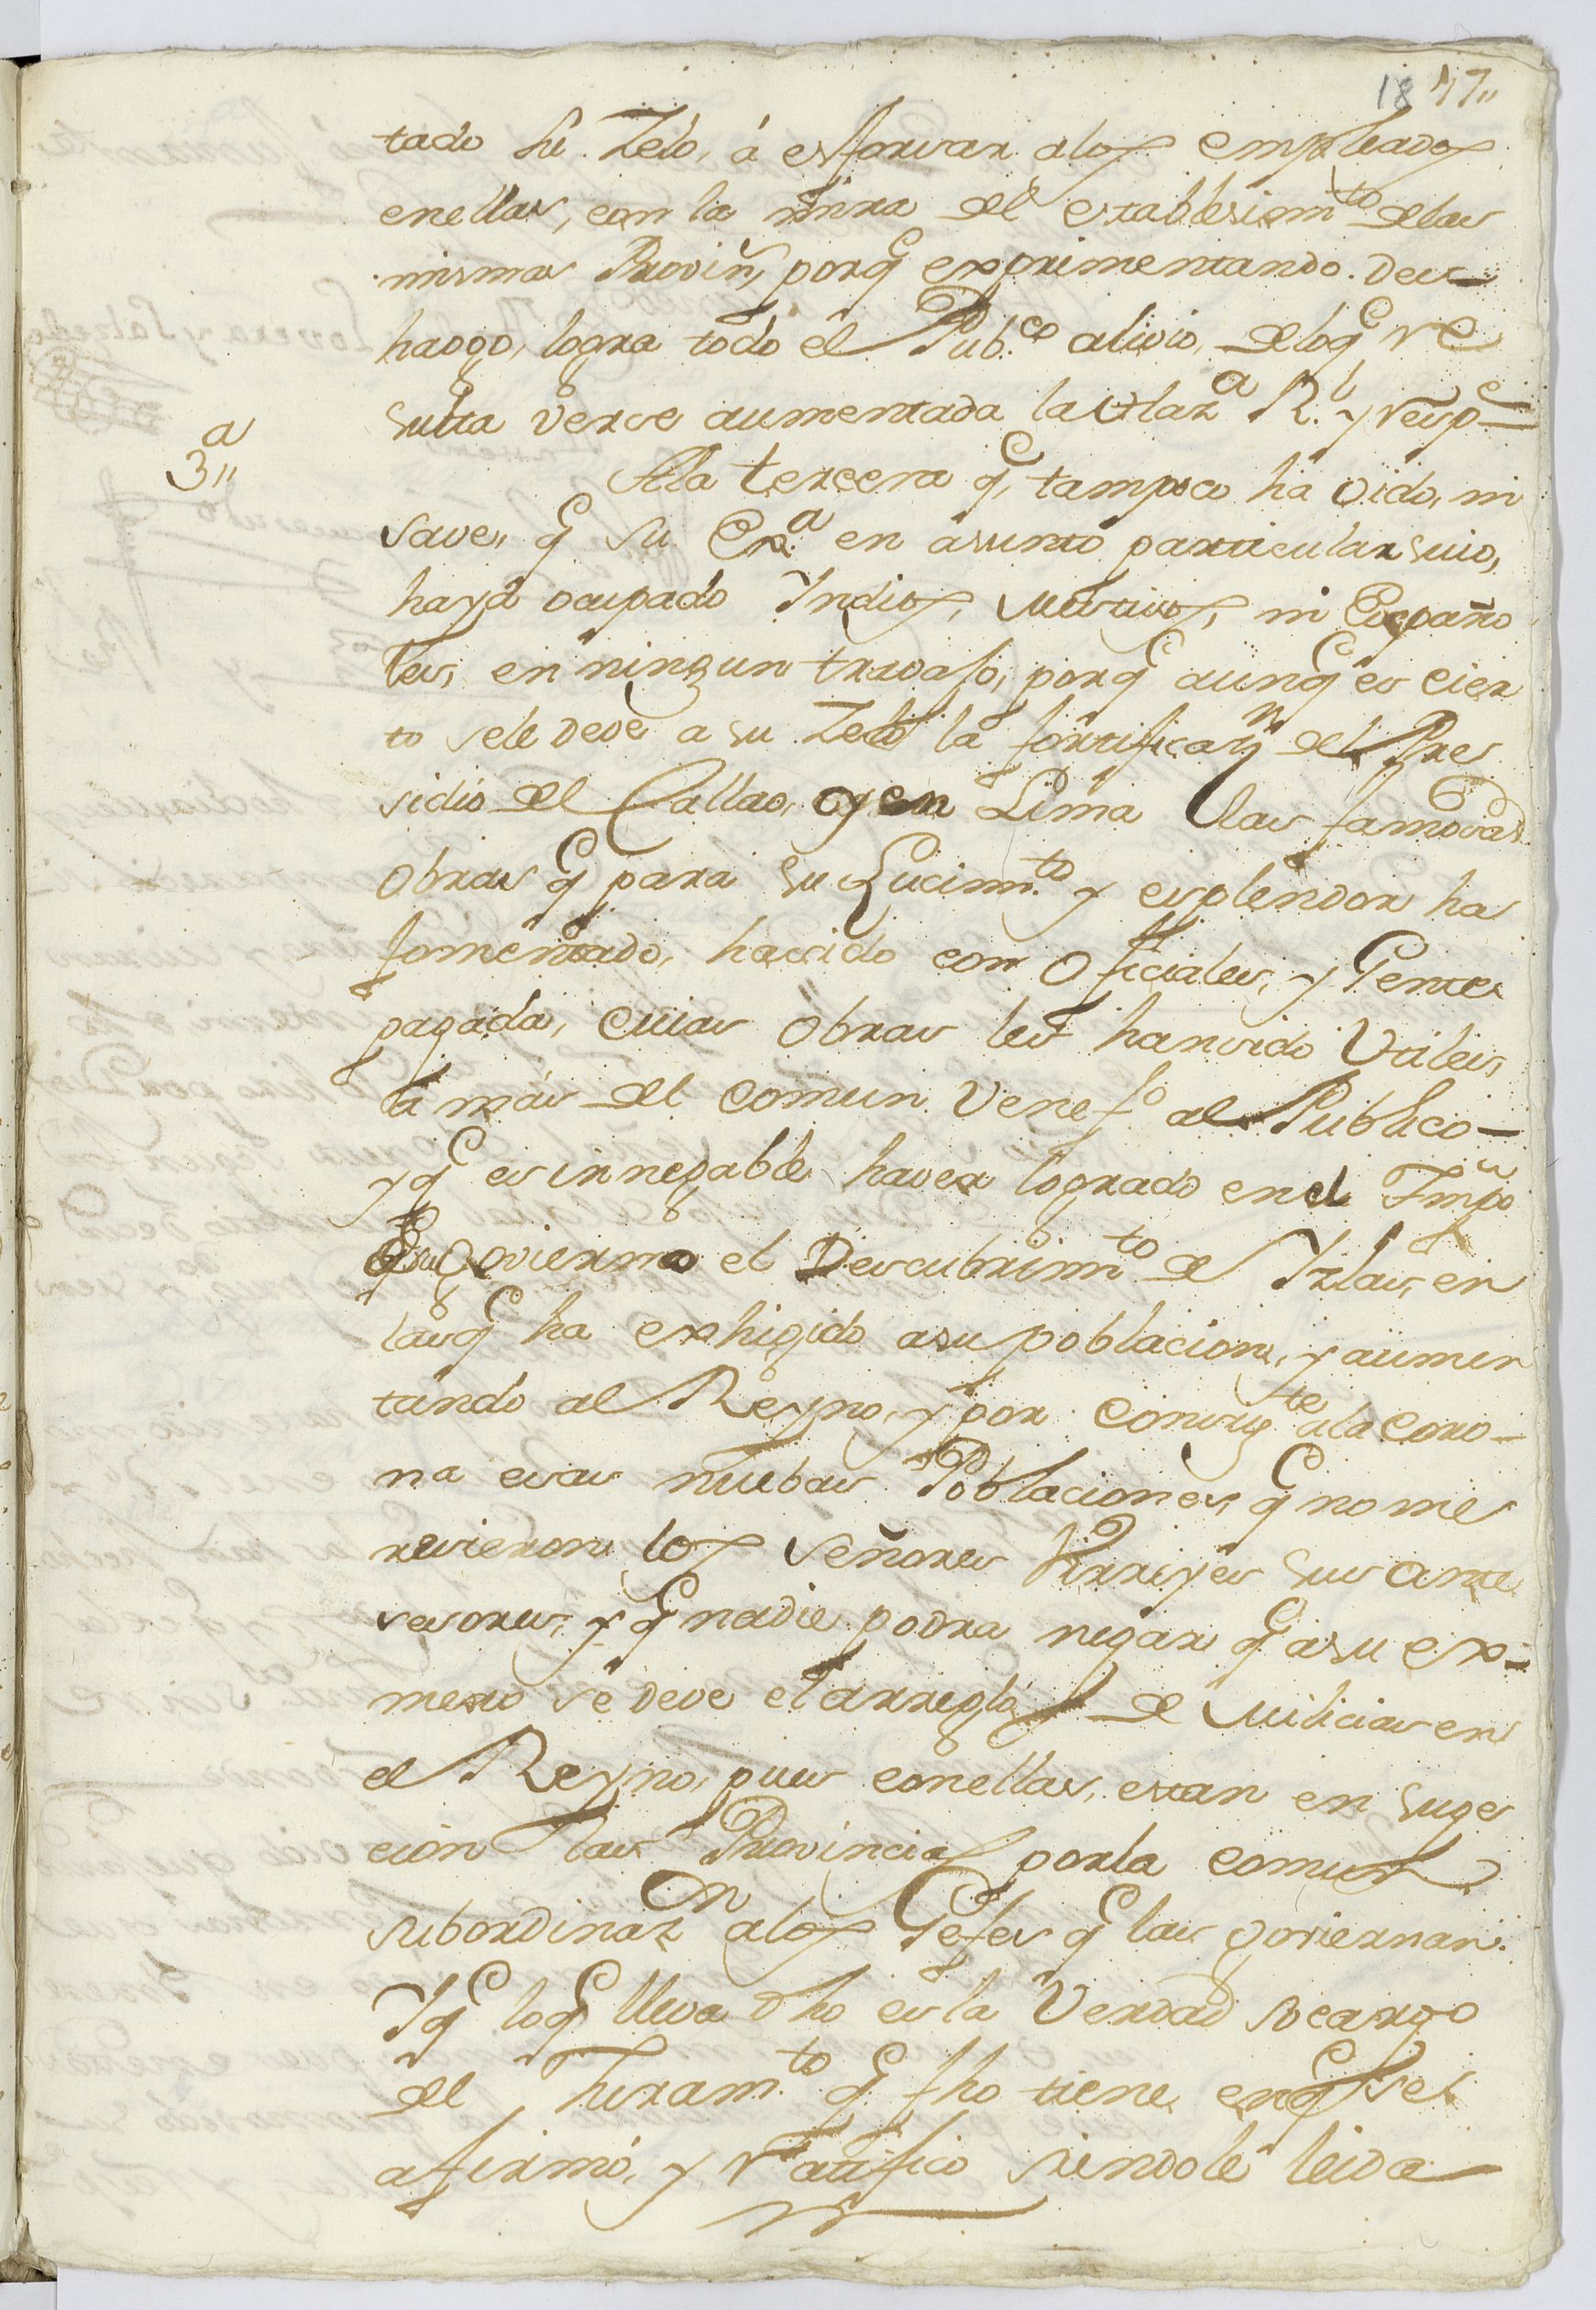 18 17,,
tado su Zelo, á esforzar alos empleados
enellas, con la mira del establesim.to delas
mismas Provin.s, porq.e exprimentando des-
haogo, logra todo el Pub.co alivio, delo q.e re
sulta verse aumentada la Haz.a R.l y resp.e
3.a,,
Ala tercera q.e tampoco ha oido, ni
save, q.e su Ex.a en asunto particular suio,
haya ocupado Yndios, Mestisos, ni Españo
les, en ningun travajo, porq.e aunq.e es cier
to sele deve a su Zelo la fortificaz.n del Pre
sidio del Callao, y en Lima las famosas
obras q.e para su Lucim.to y esplendor ha
fomentado, hacido con Oficiales, y Gente
pagada, cuias obras les hansido Vtiles,
a más del comun Venef.o al Publico-
y q.e es innegable haver logrado enel Tmpo
desu Govierno el Descubrim.to de Yslas, en
lasq.e ha exhigido asu poblacion, y aumen
tando al Reyno, y por consig.te ala coro-
na esas nuebas Poblaciones, q.e no me
recieron los Señores Virreyes sus ante
sesores, y q.e nadie podra negar q.e asu es-
mero se deve el arreglo de Milicias en
el Reyno, pues conellas, estan en suge
cion las Provincias por la comun
subordinaz.on alos Gefes q.e las goviernan.
Yq.e loq.e lleva dho es la Verdad so cargo
del Juram.to q.e fho tiene enq.e se
afirmó, y ratifico siendole leida